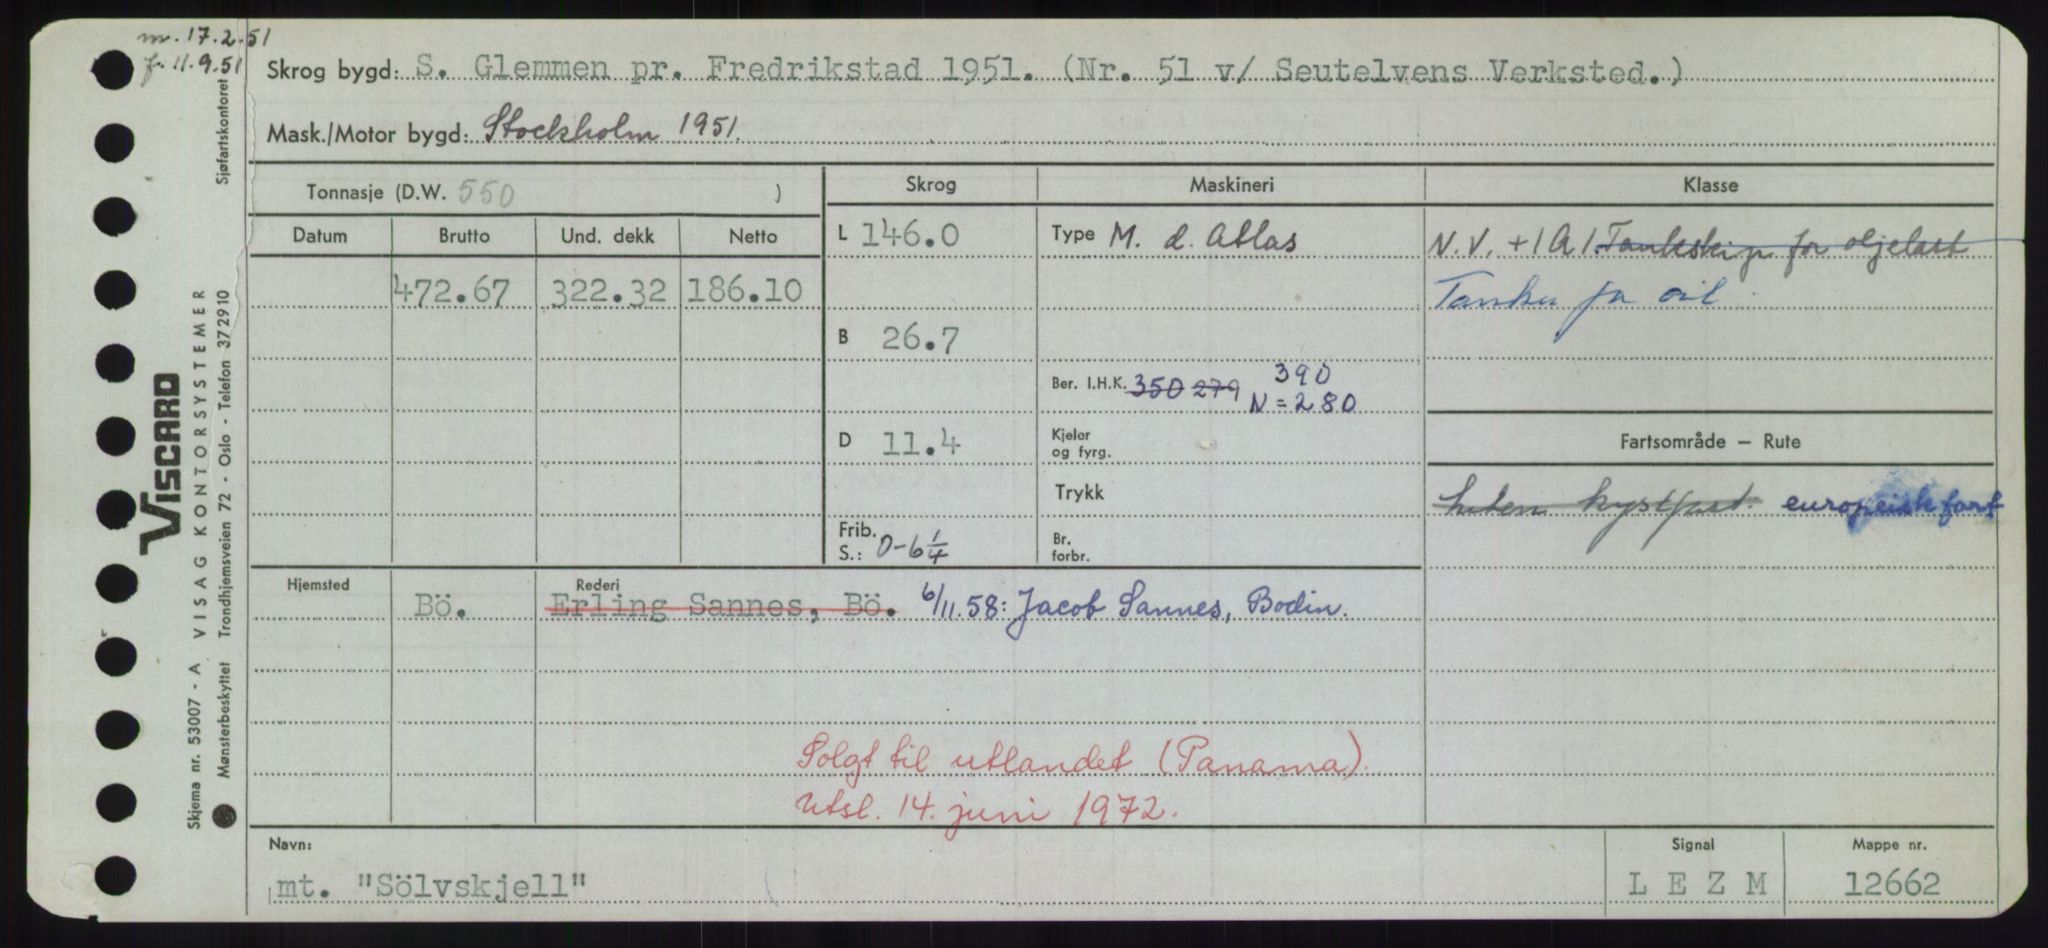 m. 17.2.51
f. 11.9.51
Skrog bygd: S. Glemmen pr. Fredrikstad 1951. (Nr. 51 v/ Seutelvens Verksted.)
Mask./Motor bygd: Stockholm 1951.
Tonnasje (D.W. 550 )
Skrog
Maskineri
Klasse
Datum
Brutto
Und. dekk
Netto
472.67
322.32
186.10
L 146.0
B 26.7
D 11.4
Frib. S.: 0-6 1/4
Type M. d. Atlas
Ber. I.H.K. 350 279 390
N = 280
Kjeler og fyrg.
Trykk
Br. forbr.
N.V. +1A1. Tankskip for oljelast
Tanker for oil
Fartsområde – Rute
liten kystfart europeisk fart
Hjemsted
Rederi
Bö.
Erling Sannes, Bö. 6/11.58: Jacob Sannes, Bodin.
Solgt til utlandet (Panama).
Utsl. 14. juni 1972.
Navn:
mt. "Sölvskjell"
Signal
LEZM
Mappe nr.
12662
VISCARD
VISAG KONTORSYSTEMER
Trondhjemsveien 72 - Oslo - Telefon 372910
Sjøfartskontoret
Skjema nr. 53007 - A
Mønsterbeskyttet